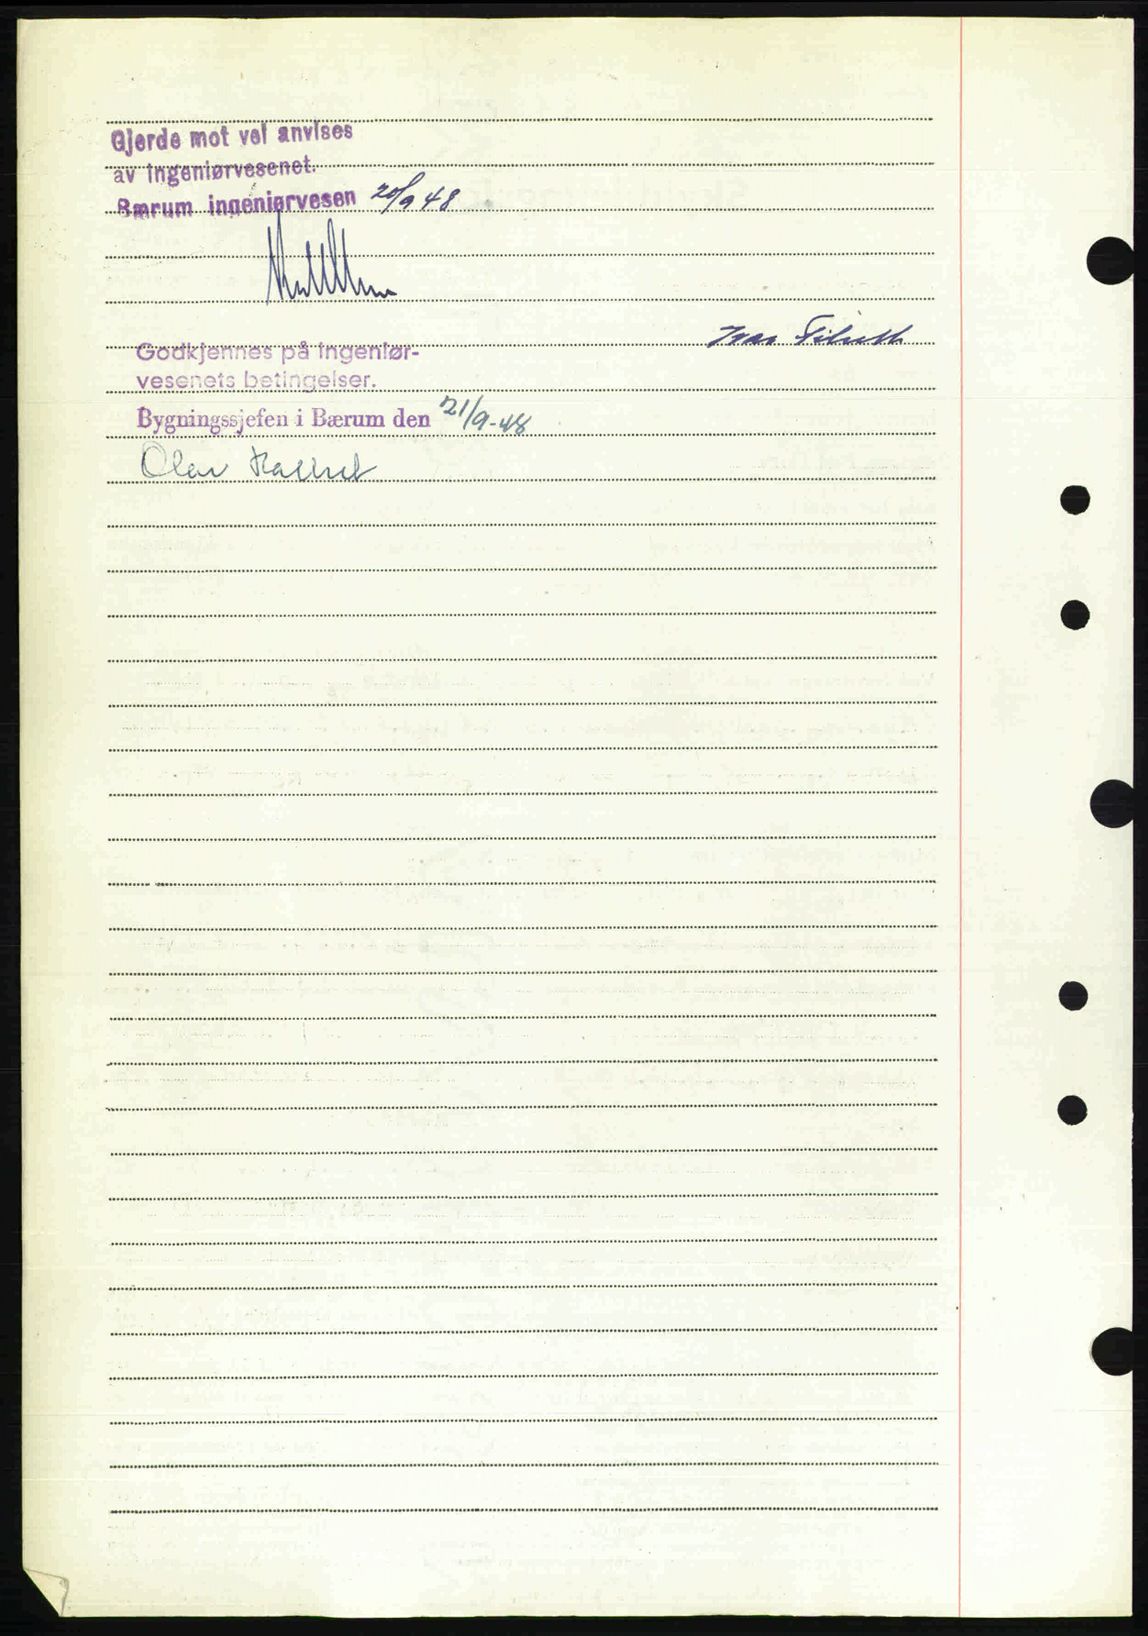 Gjerde mot vei anvises
av ingeniørvesenet.
Bærum ingeniørvesen 20/9 48
Godkjennes på ingeniør-
vesenets betingelser.
Bygningssjefen i Bærum den 21/9-48
Olav